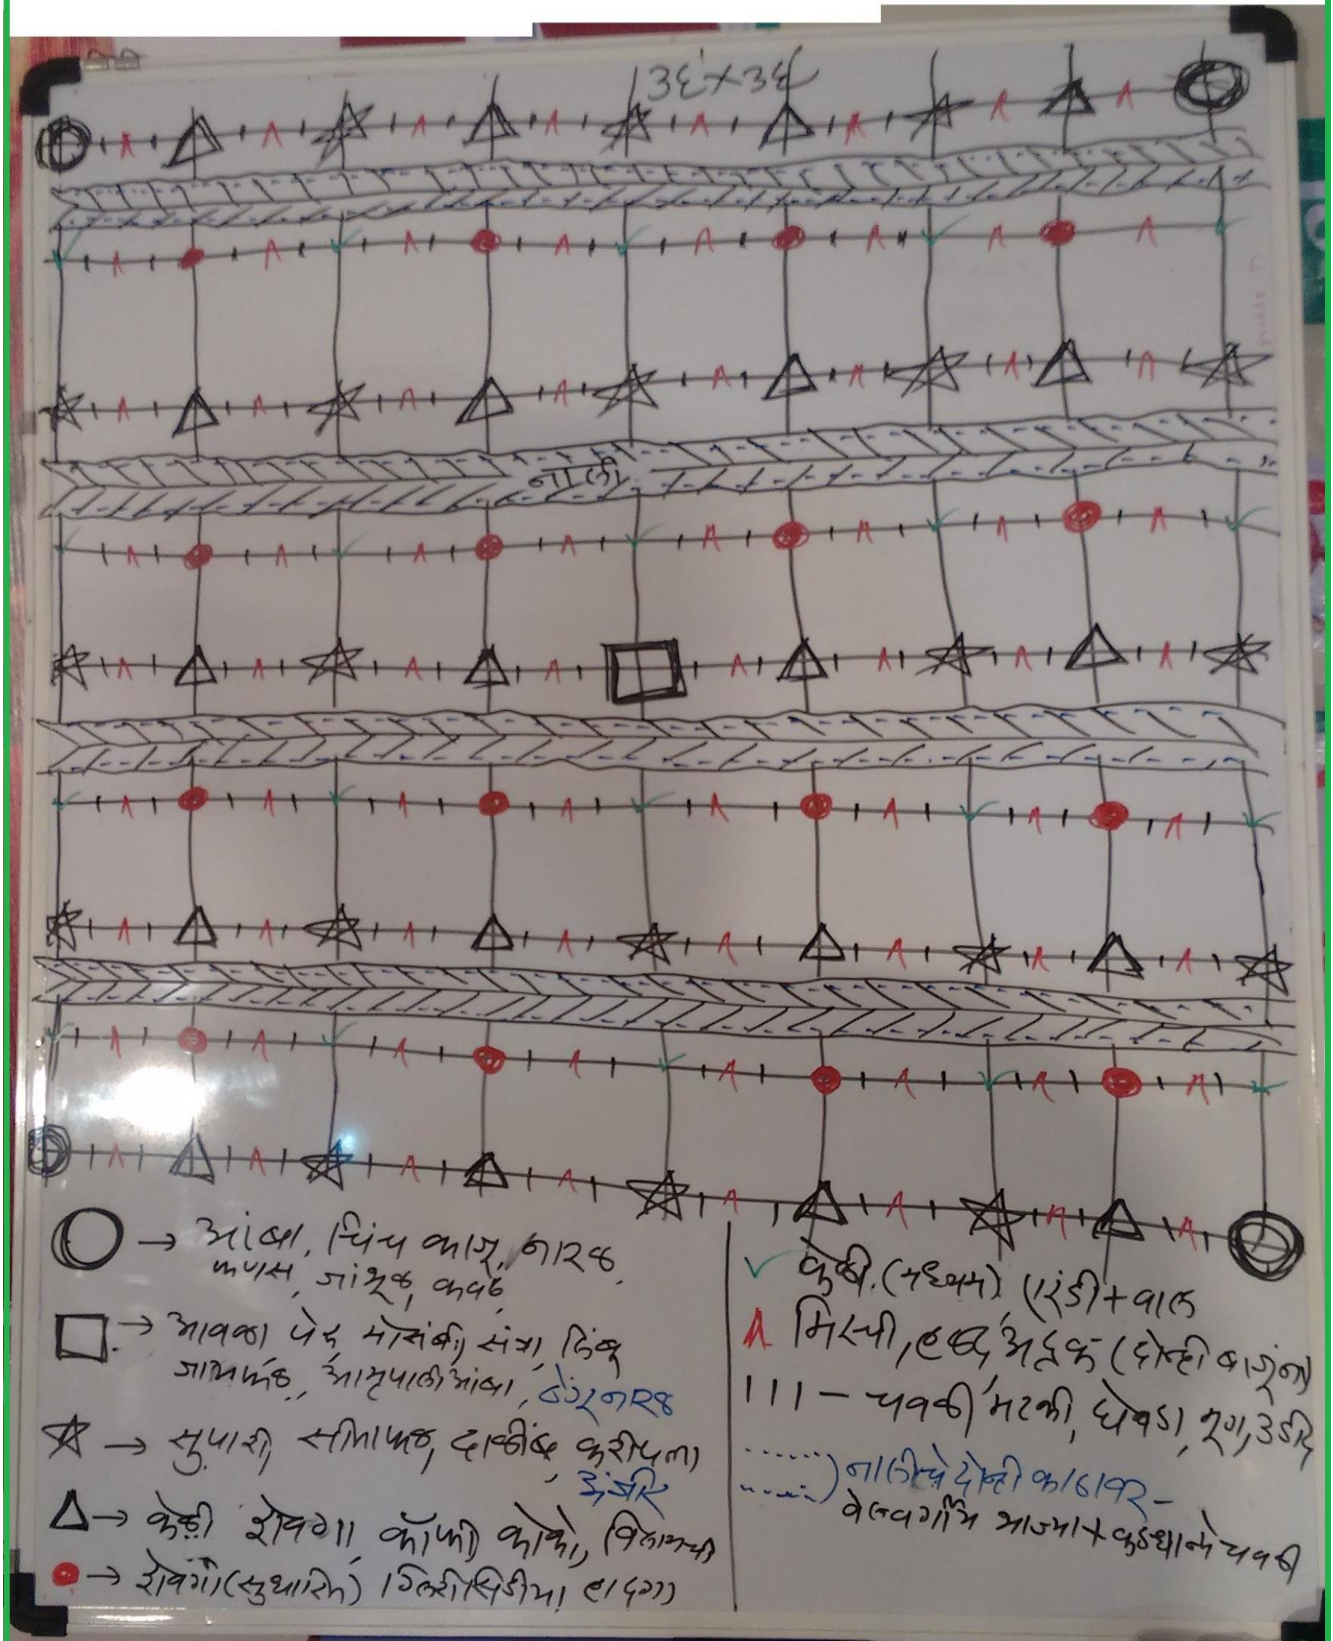 ३६'×३६'
नाली
→ आंबा, चिंच काजू, नारळ
फणस, जांभूळ, कवठ,
→ आवळा पेरू मोसंबी, संत्रा, लिंबू
जामफळ, आम्रपाली आंबा, ठेंगू नारळ
→ सुपारी, सीताफळ, दाळींब, करीपत्ता
अंजीर
→ केळी शेवगा, कॉफी, कोको,
→ शेवगा (सुधारित) ग्लिरीसिडीया, हादगा
केळी. (मध्यम) (एरंडी + वाल
मिरची, हळद, अद्रक (दोन्ही बाजूंना)
— चवळी, मटकी, घेवडा, मूग, उडीद
नालीच्या दोन्ही काठावर -
वेलवर्गीय भाज्या +